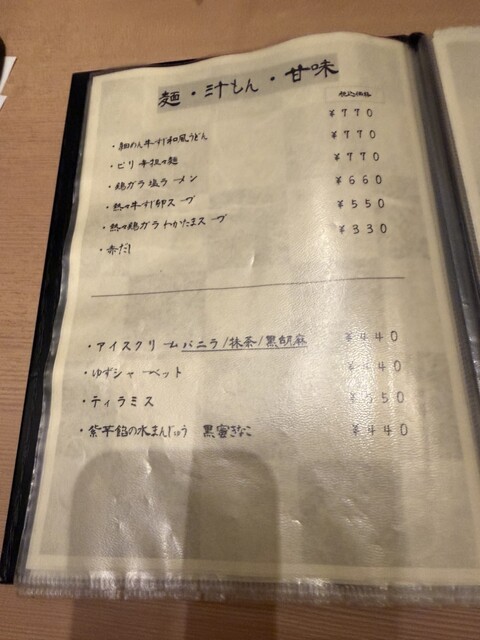 麺・汁もん・甘味
税込価格
・細めん牛すじ和風うどん ¥770
・ピリ辛担々麺 ¥770
・鶏ガラ塩ラーメン ¥770
・熱々牛すじ卵スープ ¥660
・熱々鶏ガラわかたまスープ ¥550
・赤だし ¥330
・アイスクリームバニラ/抹茶/黒胡麻 ¥440
・ゆずシャーベット ¥440
・ティラミス ¥550
・紫芋餡の水まんじゅう 黒蜜きなこ ¥440